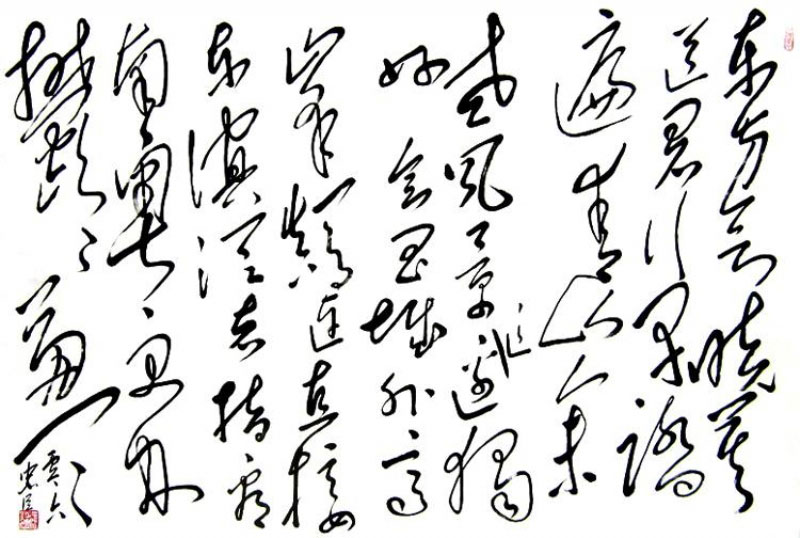 东方欲晓莫
道君行早踏
遍青山人未
老风景这边独
好会昌城外高
峰颠连直接
东溟战士指看
南粤更加
郁々葱々